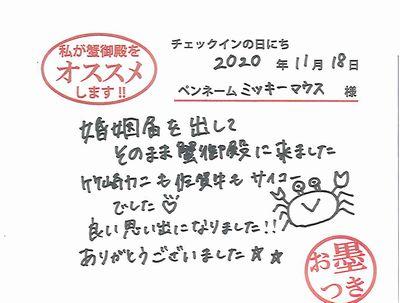 私が蟹御殿を
オススメ
します!!
チェックインの日にち
2020 年 11月 18日
ペンネーム ミッキーマウス 様
婚姻届を出して
そのまま蟹御殿に来ました
竹崎カニも佐賀牛もサイコー
でした♡
良い思い出になりました!!
ありがとうございました☆☆
お墨
つき